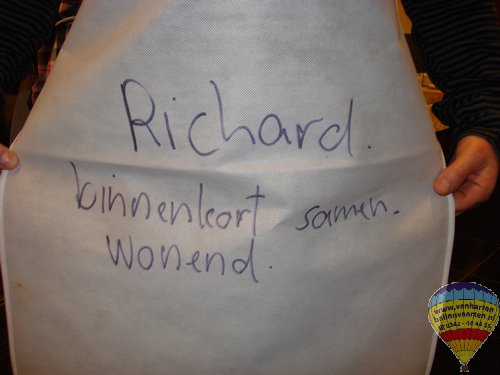 Richard.
binnenkort samen.
Wonend.
www.vanharten
ballonvaarten.nl